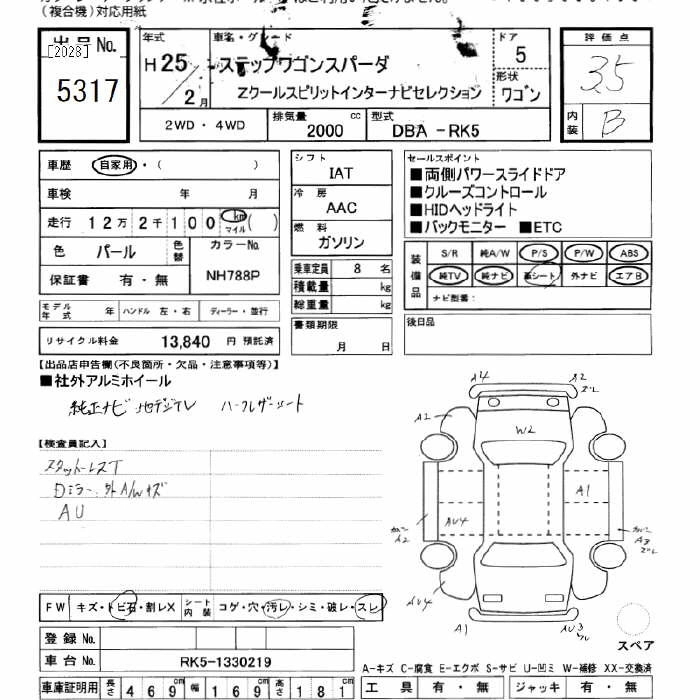 (複合機)対応用紙
出品No. [2028]
5317
年式 車名・グレード ドア 評価点
H25 ステップワゴンスパーダ 5 3.5
2月 Zクールスピリットインターナビセレクション 形状 ワゴン
2WD・4WD 排気量 2000 cc 型式 DBA-RK5 内装 B
車歴 自家用・( )
車検 年 月
走行 12万2千100 km マイル ( )
色 パール 色替 カラーNo. NH788P
保証書 有・無
モデル年式 年 ハンドル 左・右 ディーラー・並行
リサイクル料金 13,840 円 預託済
シフト IAT
冷房 AAC
燃料 ガソリン
乗車定員 8 名
積載量 kg
総重量 kg
書類期限
月 日
セールスポイント
■両側パワースライドドア
■クルーズコントロール
■HIDヘッドライト
■バックモニター ■ETC
装備品 S/R 純A/W P/S P/W ABS
純TV 純ナビ 革シート 外ナビ エアB
ナビ型番:
後日品
【出品店申告欄(不良箇所・欠品・注意事項等)】
■社外アルミホイール
純正ナビ 地デジTV ハーフレザーシート
【検査員記入】
スタットレスT
Dミラー 外A/Wキズ
AU
A4 A2
A2 W2
A1
AU4
A2 A3
AU4
A1 AU3
スペア
FW キズ・トビ石・割レX シート内装 コゲ・穴・汚レ・シミ・破レ・スレ
登録No.
車台No. RK5-1330219
車庫証明用 長さ 469cm 幅 169cm 高さ 181cm
A-キズ C-腐食 E-エクボ S-サビ U-凹ミ W-補修 XX-交換済
工具 有・無 ジャッキ 有・無